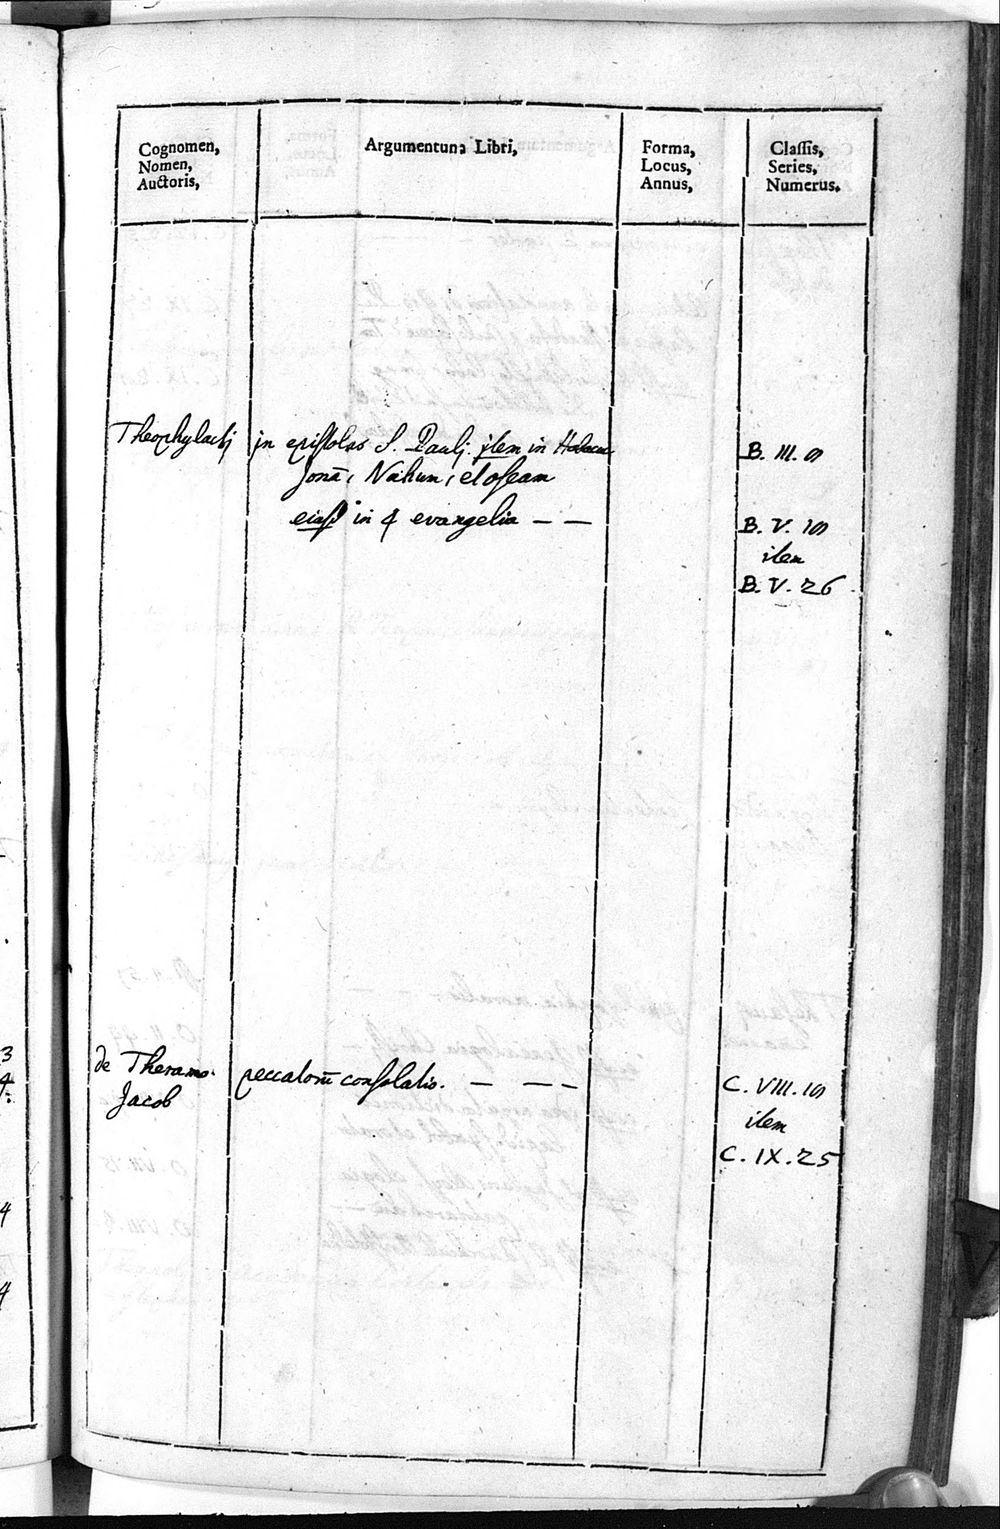 Cognomen,
Nomen,
Auctoris,
Argumentum Libri,
Forma,
Locus,
Annus,
Classis,
Series,
Numerus.
Theophylacti in epistolas S. Pauli. item in Habacuc B. III. 9
Jonā, Nahum, et oseam
eiusd in 4 evangelia — — B. V. 19
item
B. V. 26
de Theramo. peccatorū consolatio. — — — C. VIII. 19
Jacob item
C. IX. 25